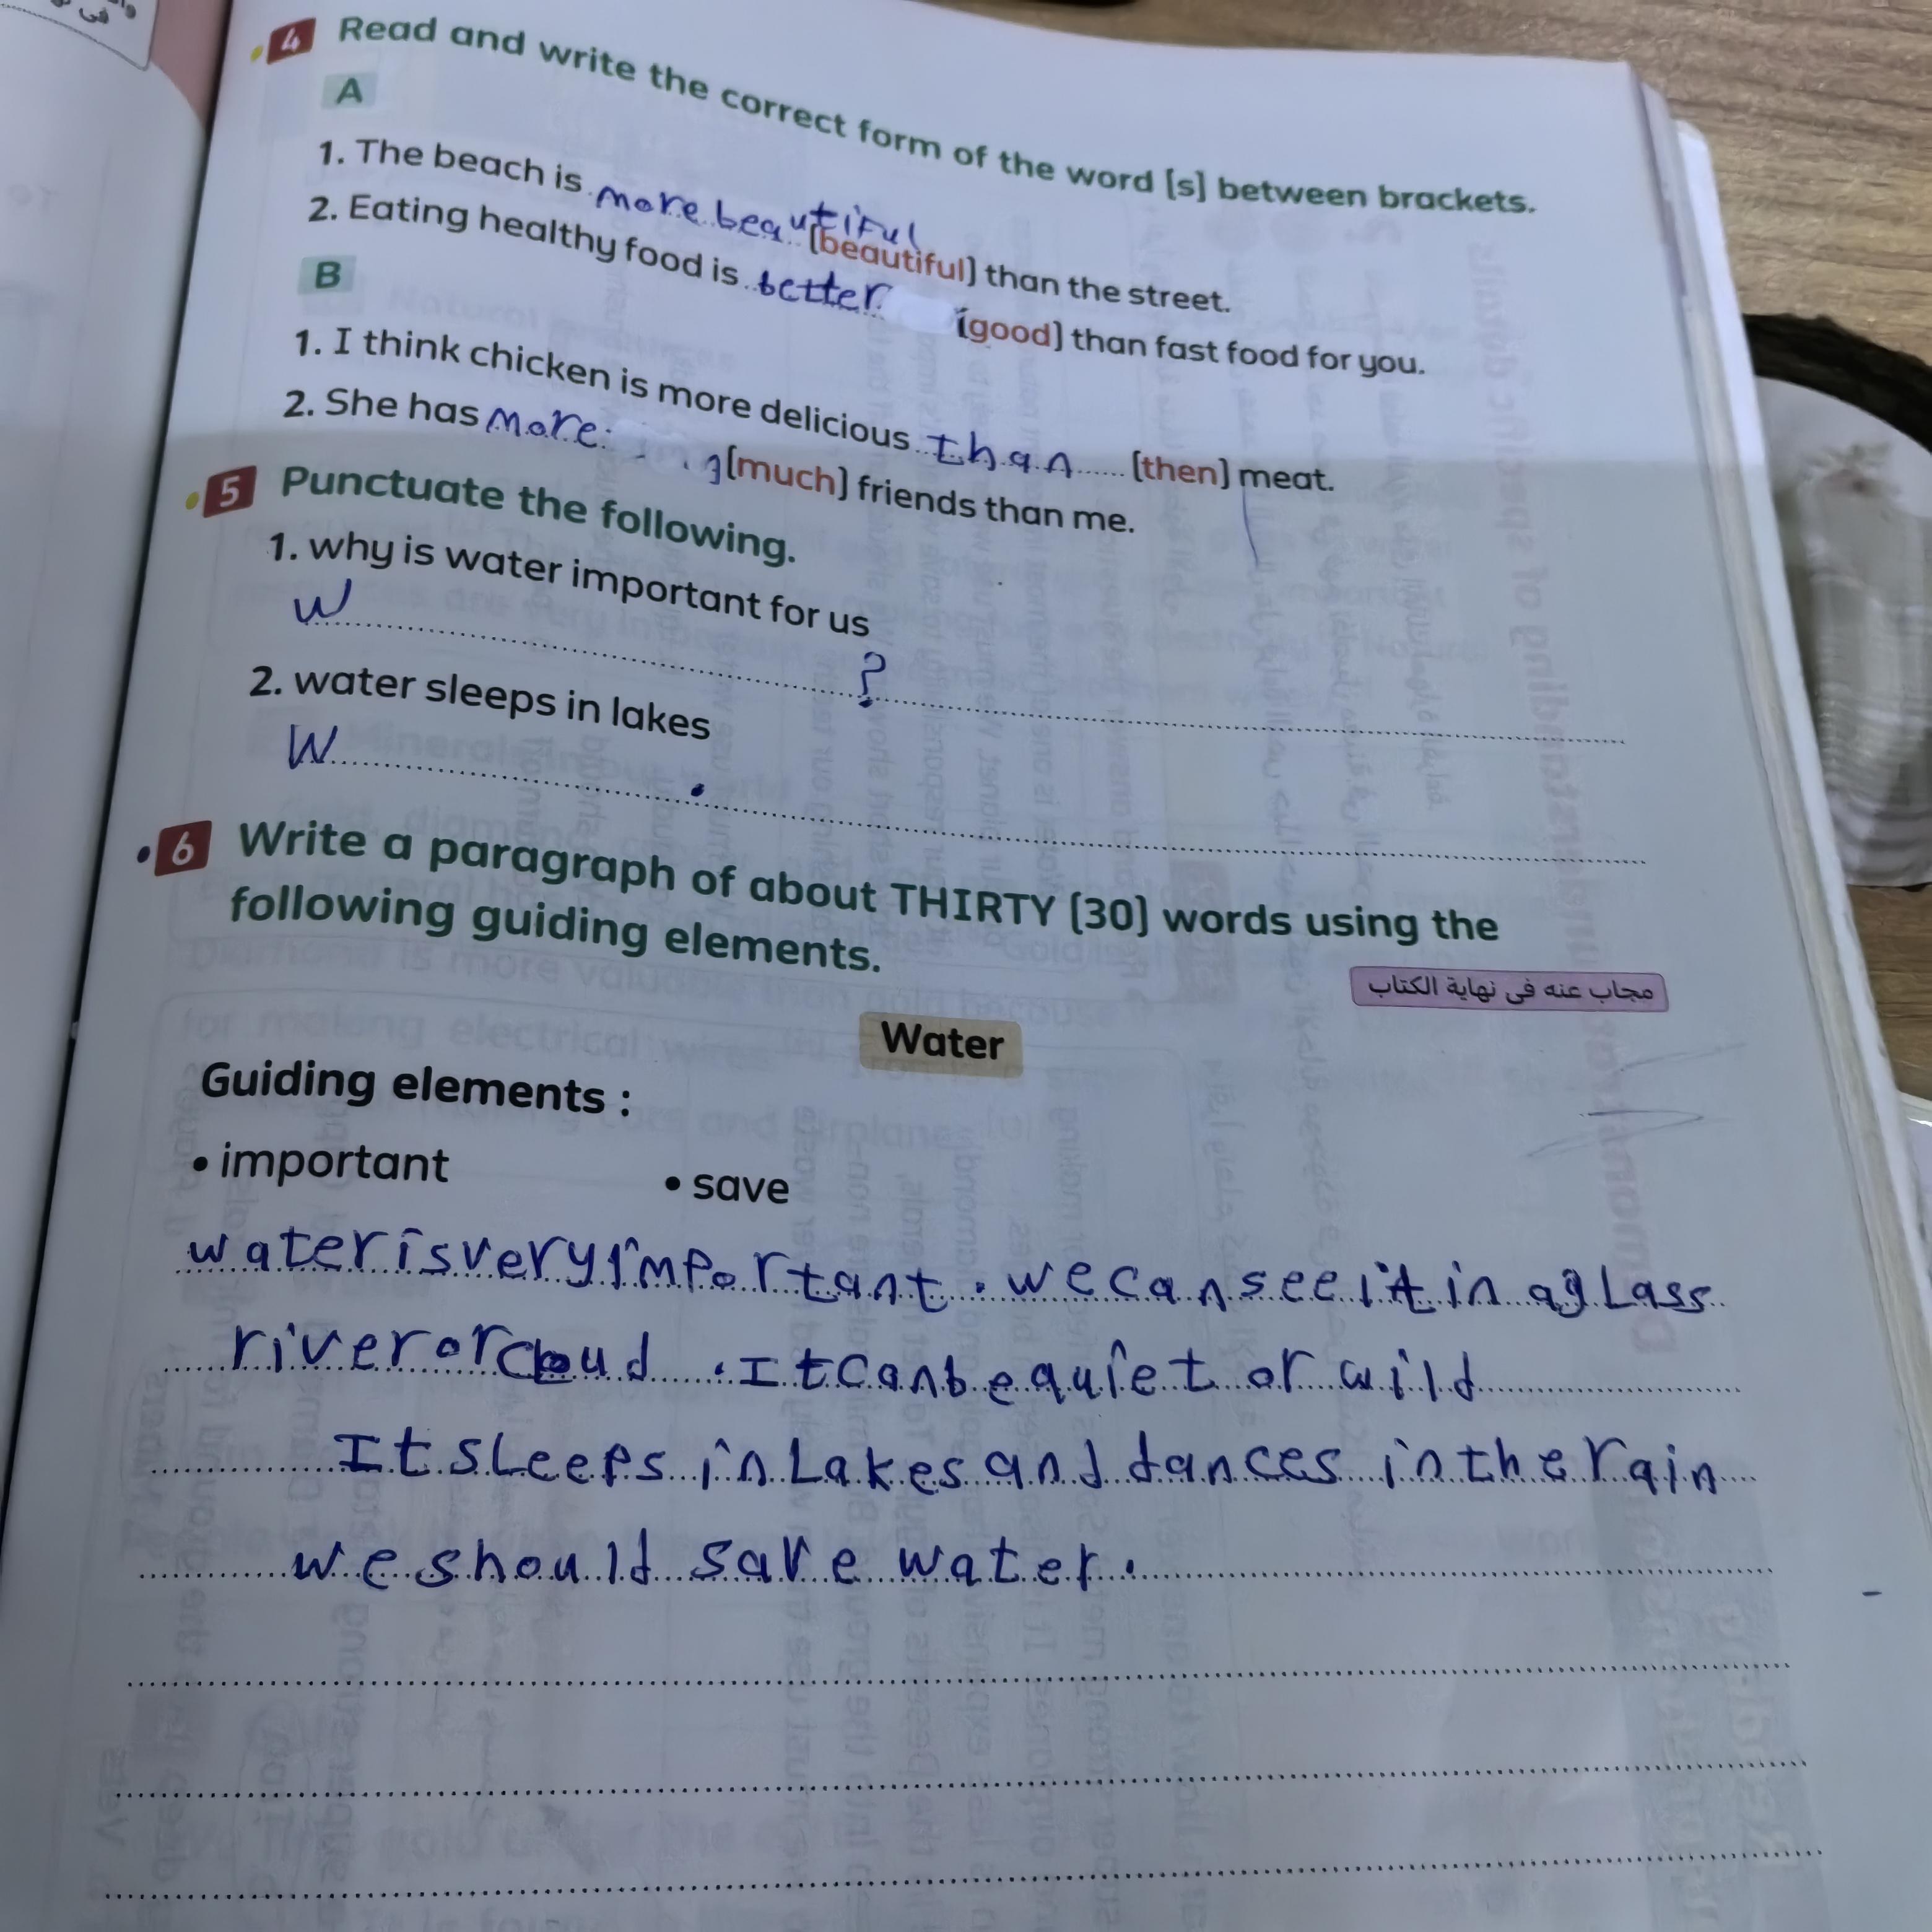 4 Read and write the correct form of the word [s] between brackets.
A
1. The beach is more beautiful [beautiful] than the street.
2. Eating healthy food is better [good] than fast food for you.
B
1. I think chicken is more delicious than [then] meat.
2. She has more [much] friends than me.
5 Punctuate the following.
1. why is water important for us
W ?
2. water sleeps in lakes
W .
6 Write a paragraph of about THIRTY [30] words using the
following guiding elements.
مجاب عنه فى نهاية الكتاب
Water
Guiding elements :
• important • save
water is very important . we can see it in a glass
river or cloud . It can be quiet or wild
It sleeps in Lakes and dances in the rain
we should save water .